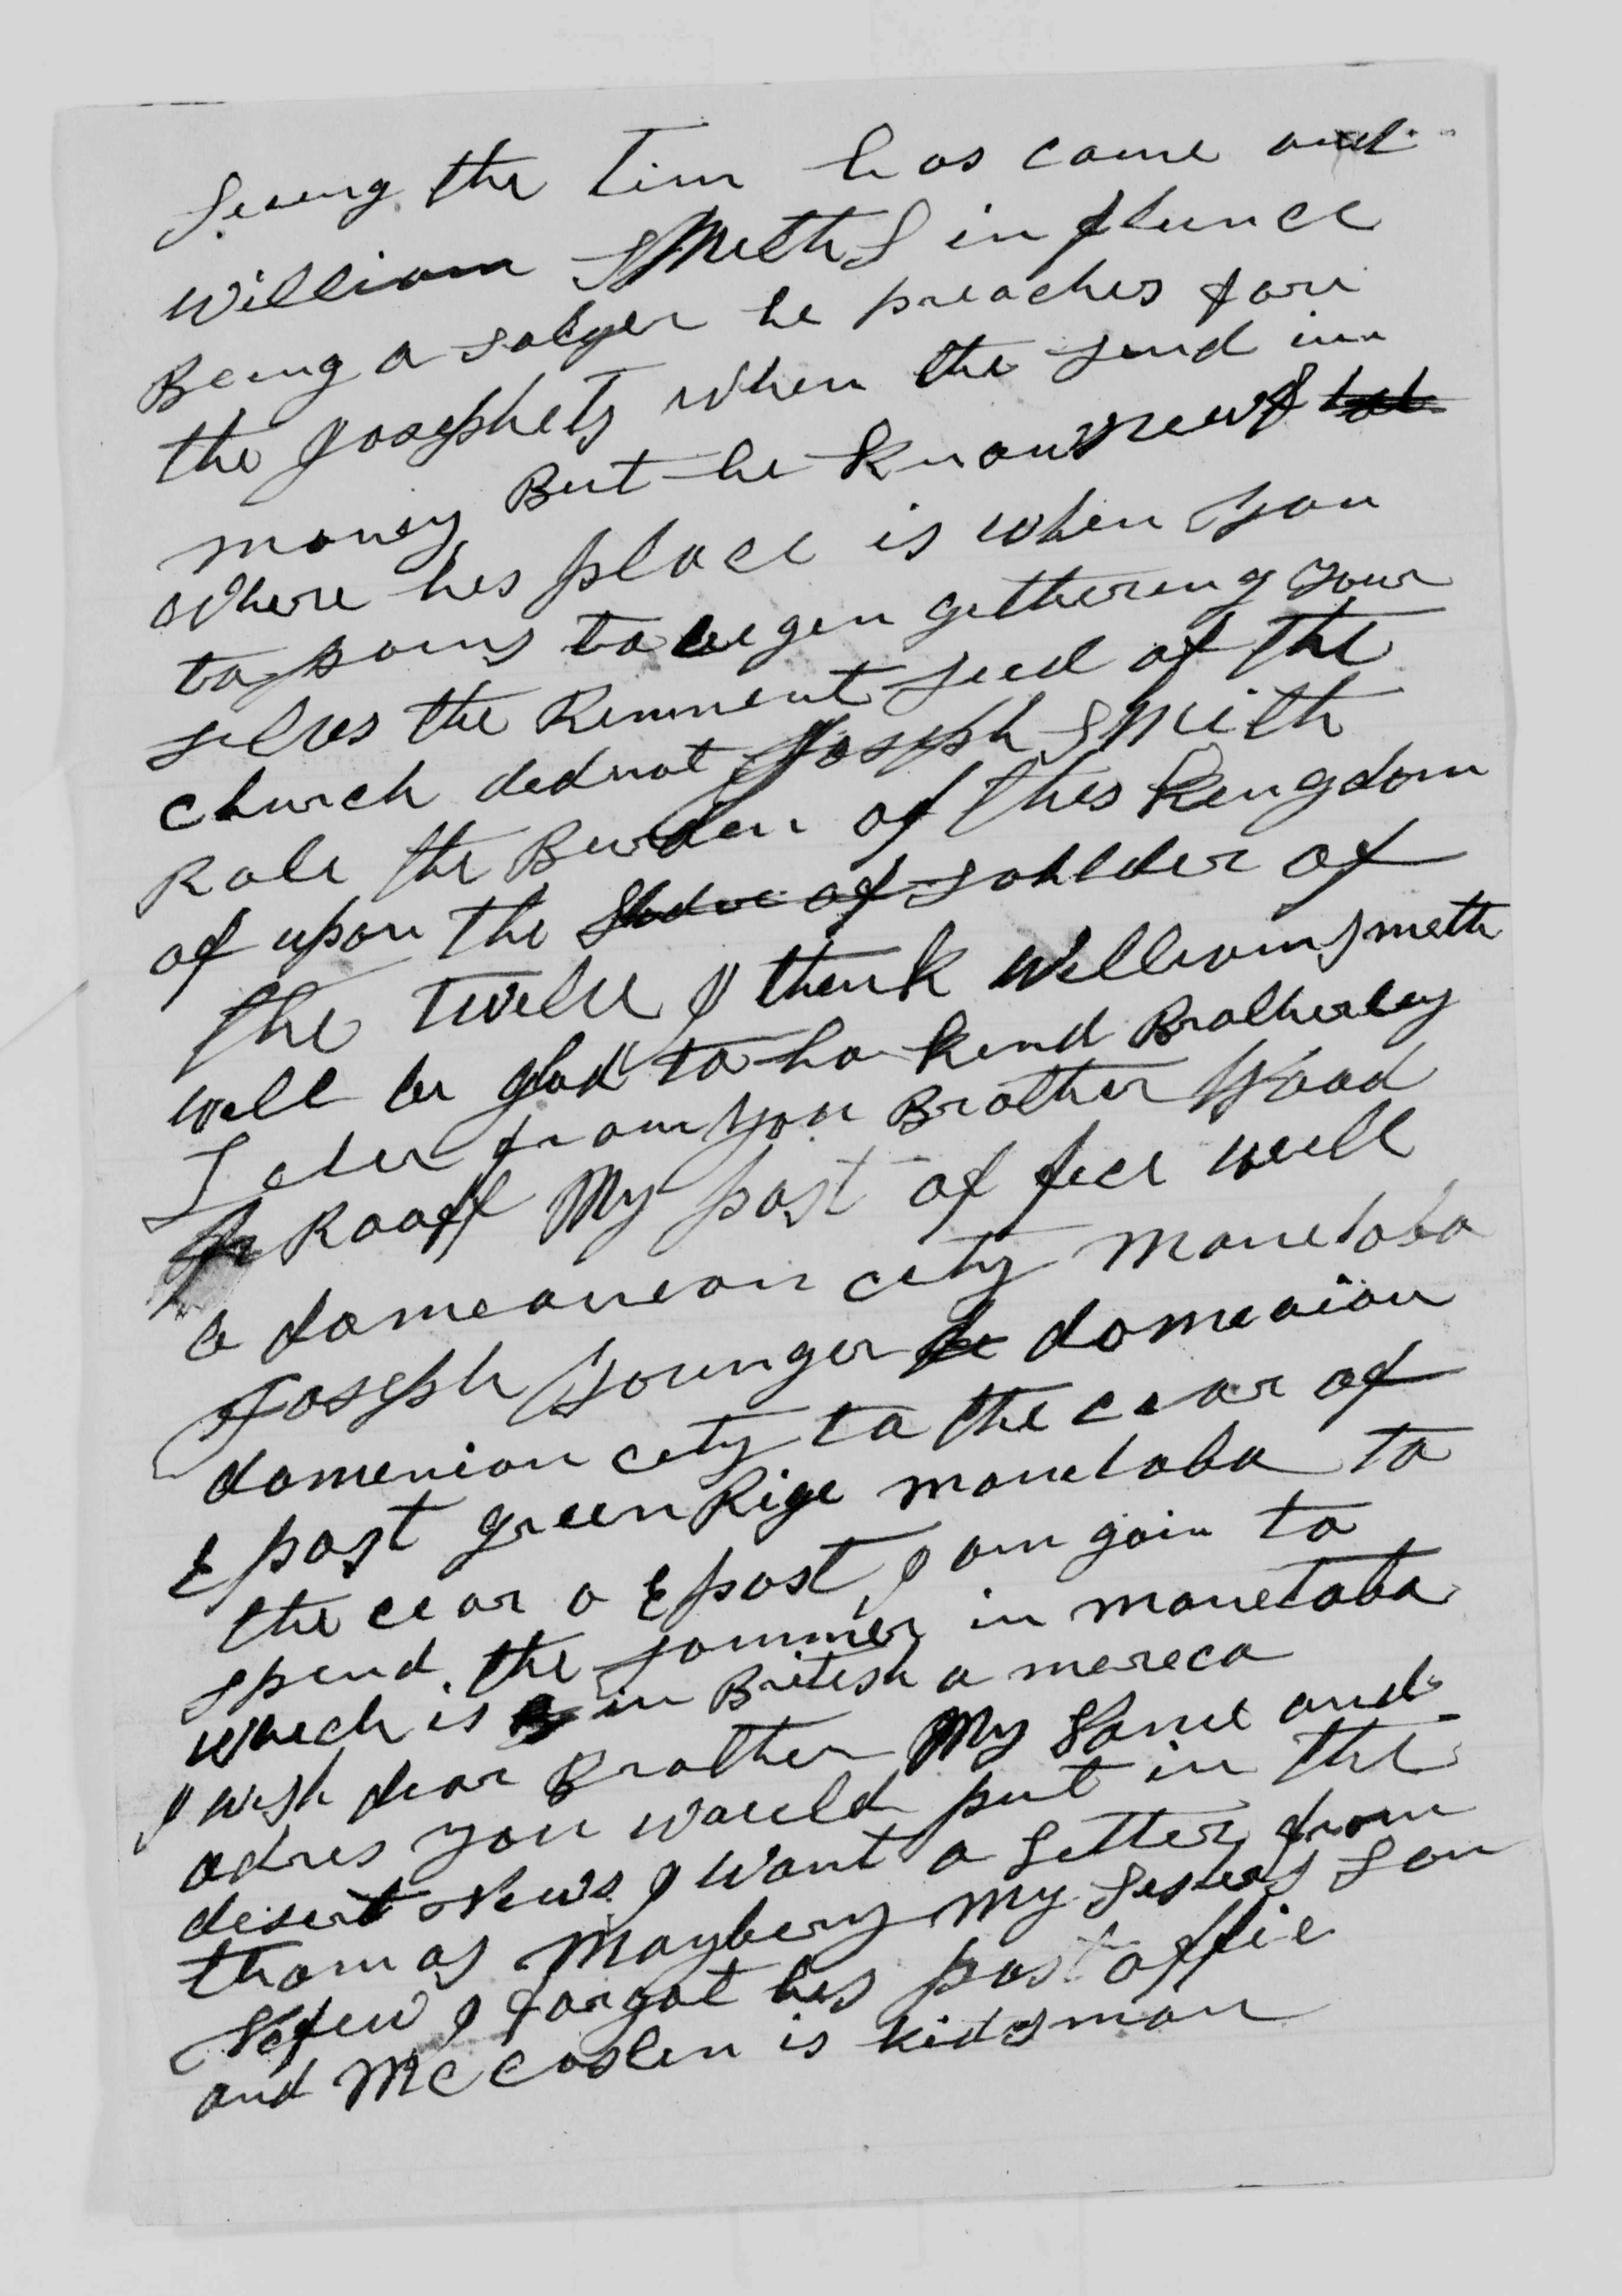 Seeing the Tim has came and
William SMith,S influnce
Being a solgier he preaches for
the Josephets when the send im
money But he knows
where his place is when you
to pours to begen gethereng your
selves the Remment seed of the
church ded not Joseph Smith
Role the Burden of this Kengdom
of upon the sohlder of
the Twelve I thenk William Smeth
well be glad to ha kend Brotherley
Leter from you Brother Wood
Rooff My post of fice well
be domeoneon cety Manetoba
Joseph Younger domeoion
domenion cety to the cear of
E post green Rige manetoba to
the cear o E post I am goin to
spend the sommer in manetoba
which is in British a mereca
I wish dear Brother My Name and
adres you would put in the
desert News I want a Letter from
thomas Maybery My Sesters Son
Nefew I forgot his post offie
and McCoslen is kidsman